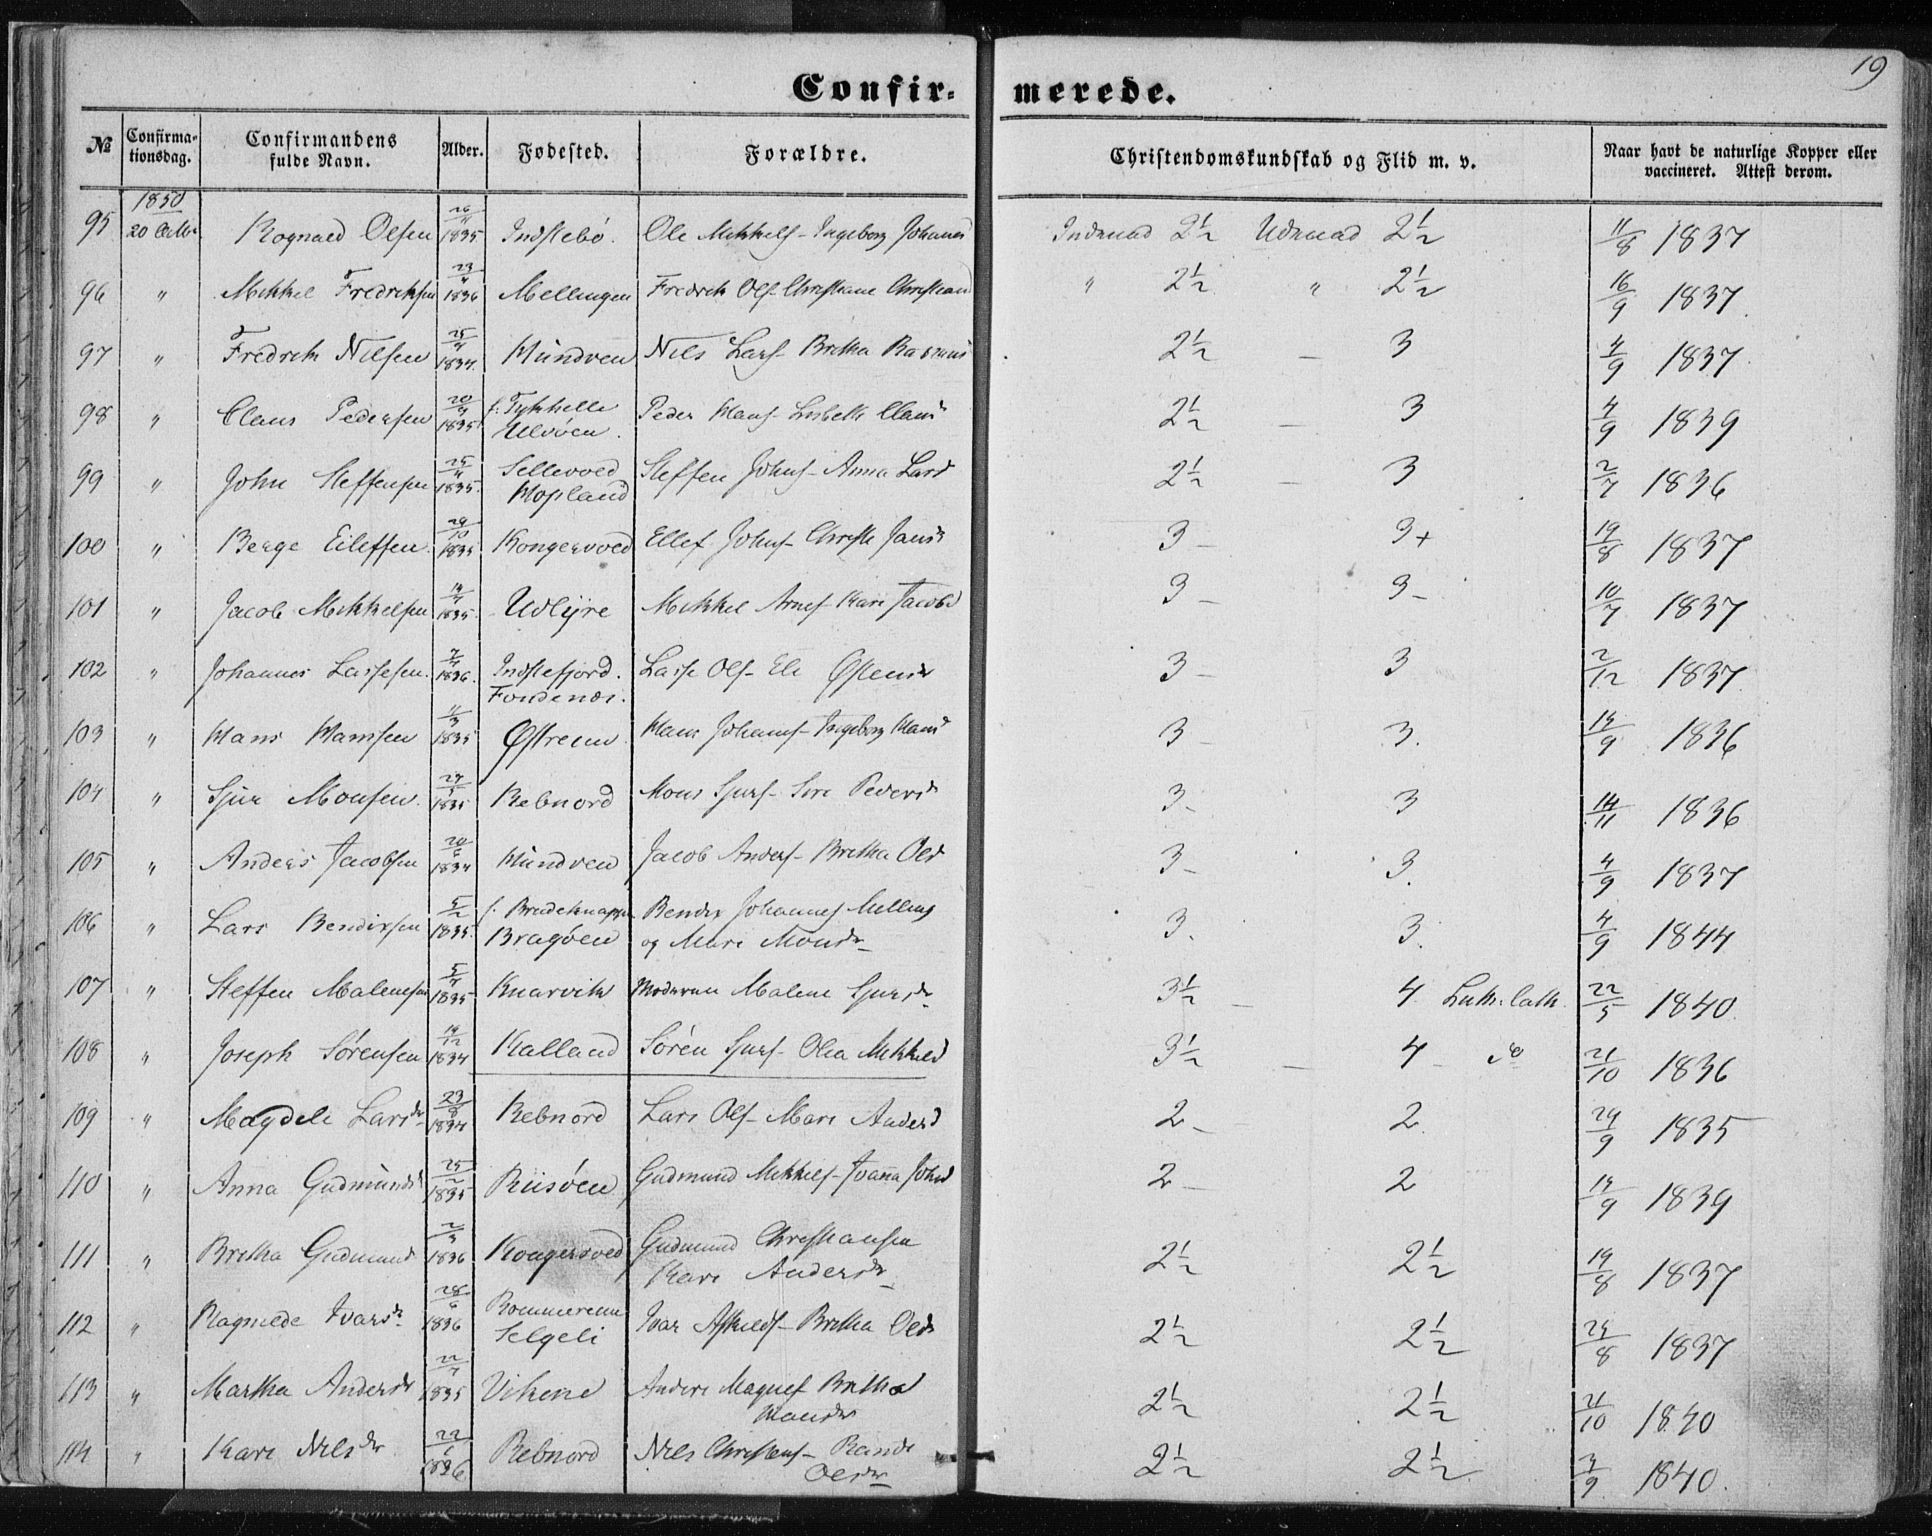 19
Confirmerede.
№ Confirmationsdag. Confirmandens fulde Navn. Alder. Fødested. Forældre. Christendomskundskab og Flid m. v. Naar havt de naturlige Kopper eller vaccineret. Attest derom.
1850
95 20 Octbr Rognald Olsen 26/11 1835 Indstebö. Ole Mikkels- Ingeborg Johansd Indenad 2½ Udenad 2½ 11/8 1837
96 " Mikkel Fredriksen 23/4 1836 Mellingen Fredrik Ols- Christiane Christiansd " 2½ " 2½ 16/9 1837
97 " Fredrik Nilsen 25/4 1834. Hundven Nils Lars- Britha Rasmusd 2½ — 3 4/9 1837
98 " Claus Pedersen 20/4 1835 f. Tykhelle Ulvöen. Peder Hans- Lisbeth Clausd 2½ — 3 4/9 1839
99 " John Steffensen 25/4 1835. Sellevold Hopland Steffen Johns- Anna Larsd 2½ — 3 2/7 1836
100 " Berge Eileffsen 29/10 1835 Kongesvoed Ellef Johns- Christi Jansd 3 — 3+ 19/8 1837
101 " Jacob Mikkelsen 14/4 1835. Udlyre Mikkel Arnes- Kari Jacobsd 3 — 3- 10/7 1837
102 " Johannes Lassesen. 7/4 1836. Indstefjord. Fondenæs. Lasse Ols- Eli Östensdr 3 — 3 2/12 1837
103 " Hans Hansen 11/3 1835 Östreim Hans Johans- Ingeborg Hansd 3 — 3. 14/9 1836
104 " Sjur Monsen. 1835 Rebnord Mons Sjurs- Siri Pedersdr 3- 3 14/11 1836
105 " Anders Jacobsen 20/6 1834 Hundven Jacob Anders- Britha Olsd 3- 3. 4/9 1837
106 " Lars Bendixsen 5/2 1835. f. Brudeknappen Bragöen Bendix Johannes- Melling
og Mari Monsdr 3. 3. 4/9 1844
107 " Steffen Malenesen 5/4 1835 Knarvik Moderen Malene Sjursdr 3½ — 4 Luth. Cath. 22/5 1840
108 " Joseph Sørensen 14/12 1834 Kalland Søren Sjurs- Olia Mikkelsd 3½ — 4 - do 21/10 1836
109 " Magdeli Larsdr 23/8 1834 Rebnord Lars Ols- Mari Andersd 2- 2 24/9 1835
110 " Anna Gudmundsd 25/2 1835 Riisöen Gudmund Mikkels- Joana Johnsd 2- 2 14/9 1839
111 " Britha Gudmundsd 2/3 1836 Kongesvoed Gudmund Christiansen
Kari Andersdr 2½ 2½ 19/8 1837
112 " Ragnilde Ivarsdr 28/6 1836 Rommereim Selgeli Ivar Askilds- Britha Olsdr 2½ 2½ 24/8 1837
113 " Martha Andersdr 22/7 1835 Vikene Anders Magnes- Britha
Hansdr 2½ 2½ 21/10 1840
114 " Kari Nilsdr 22/6 1836 Rebnord Nils Christens- Randi
Olsdr 2½ 2½ 3/9 1840.